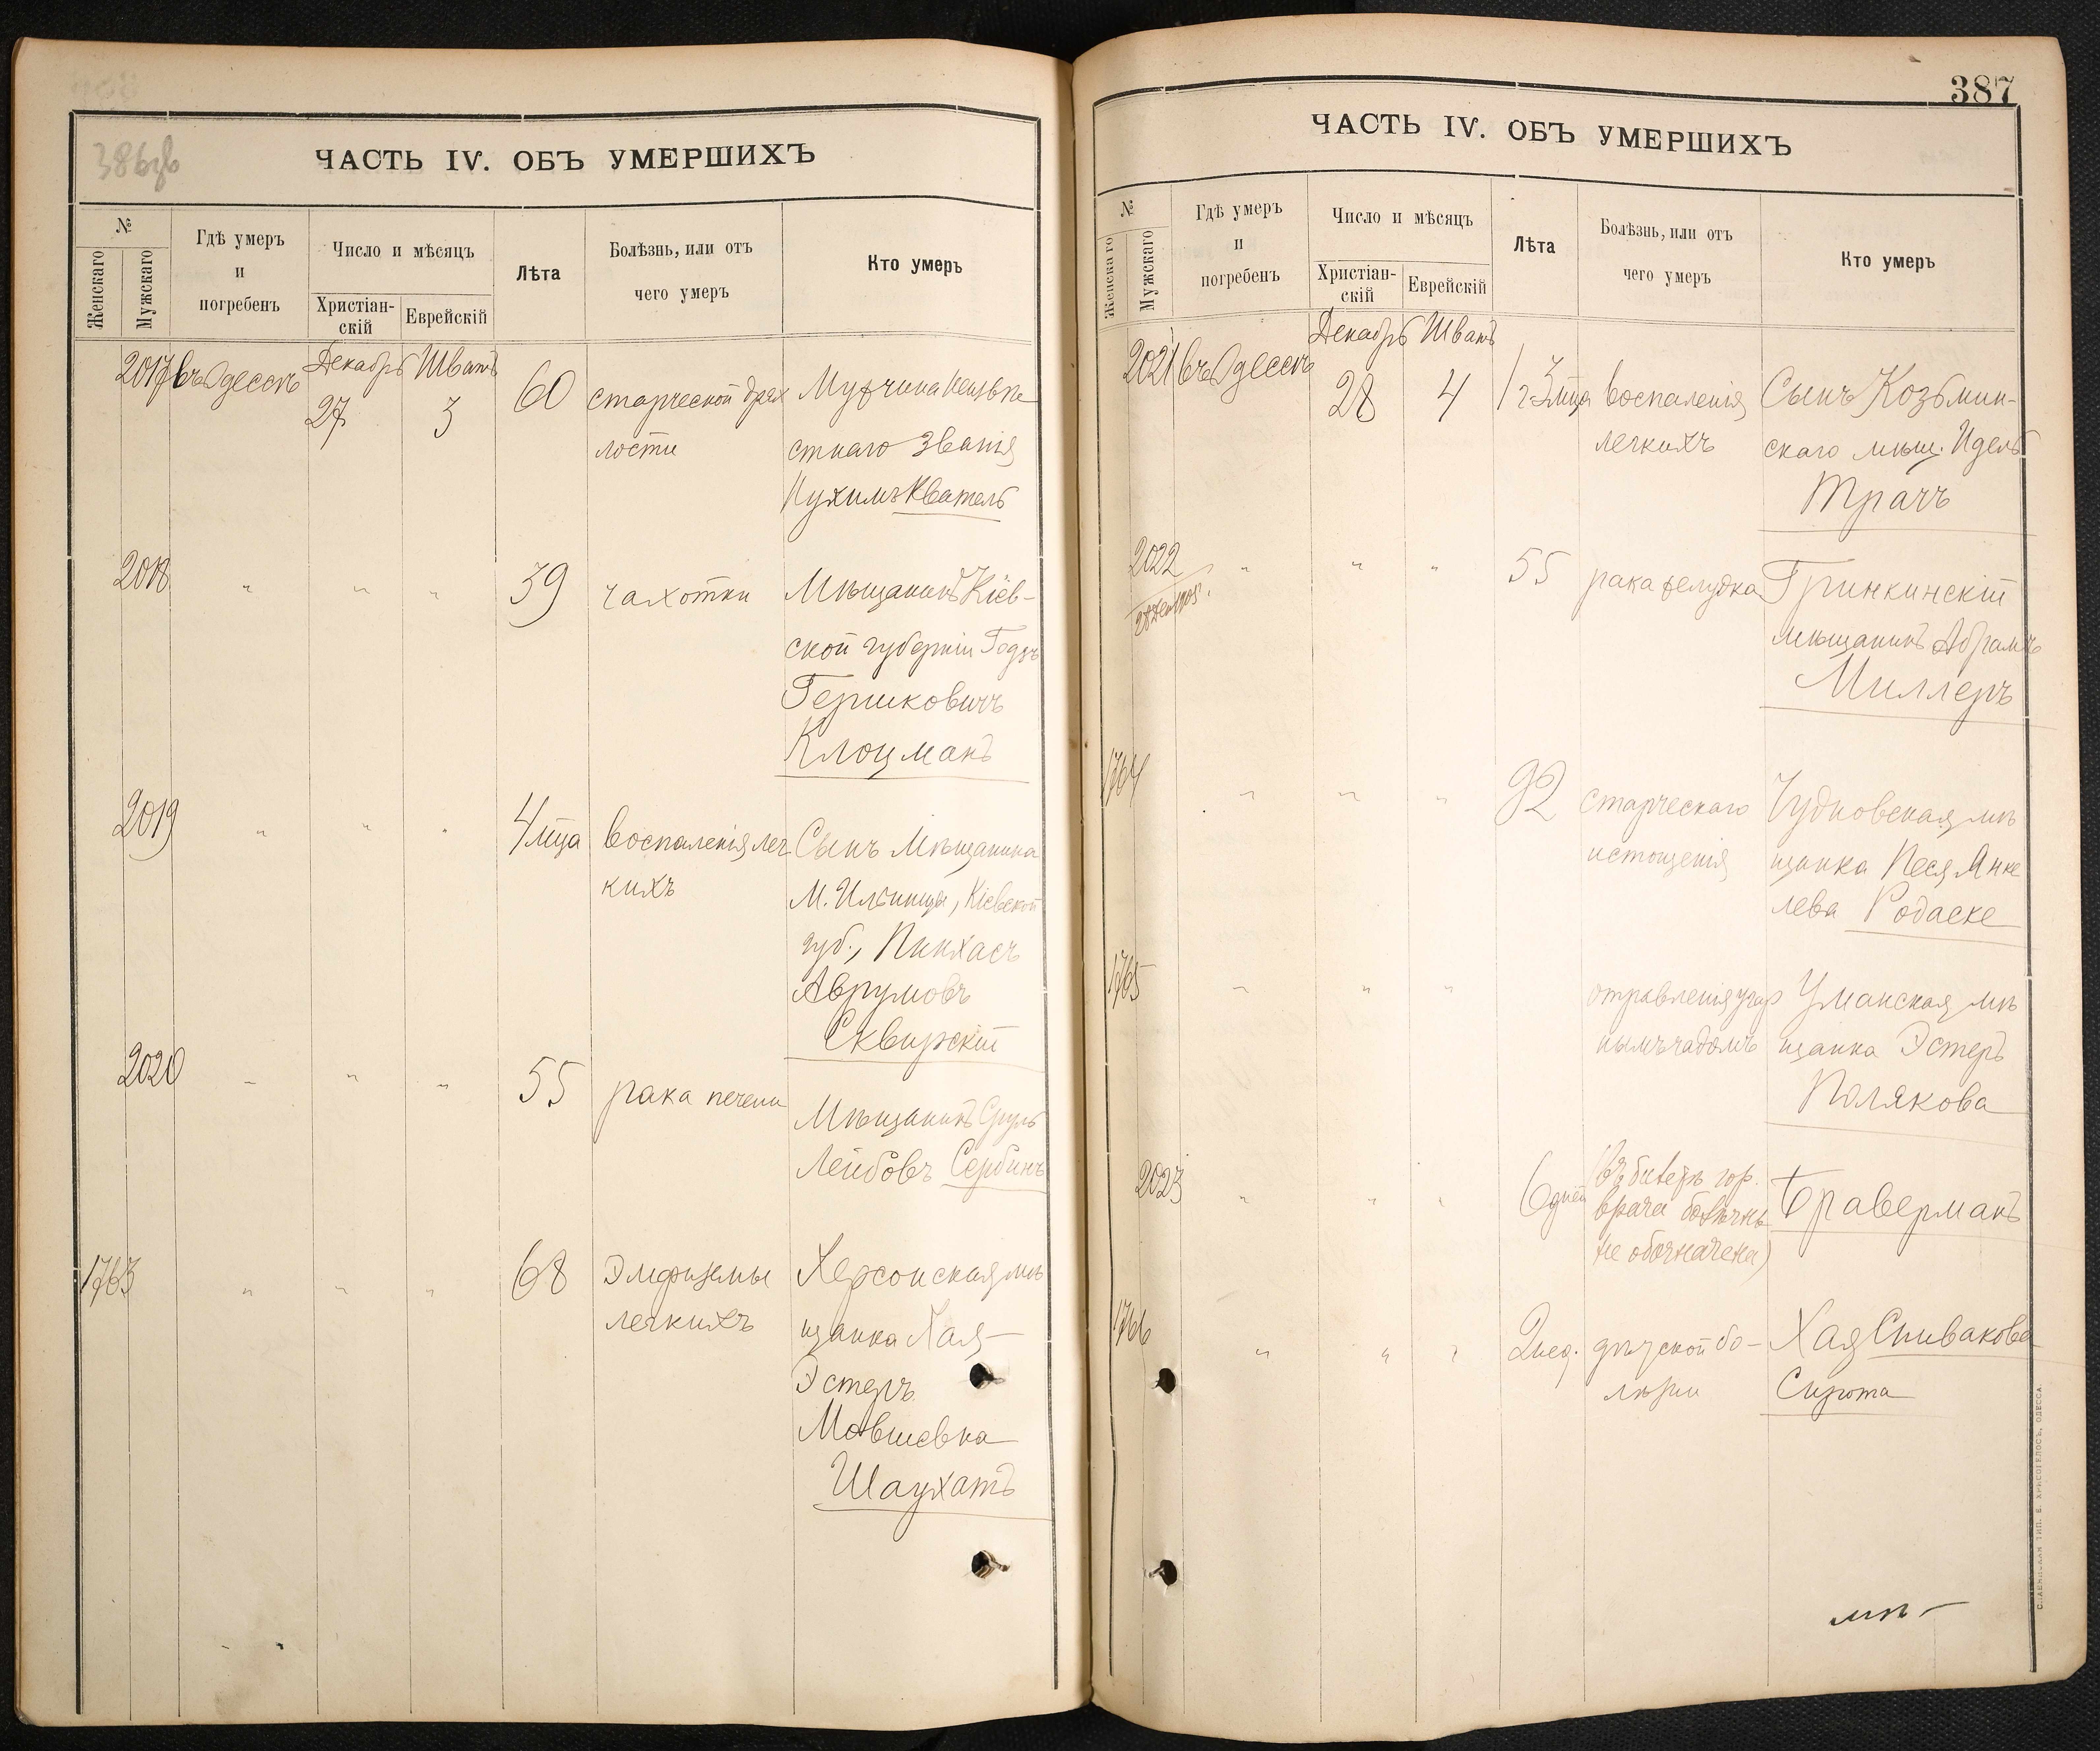 386зв
ЧАСТЬ IV. ОБЪ УМЕРШИХЪ
№
Женскаго
Мужскаго
Гдѣ умеръ
и
погребенъ
Число и мѣсяцъ
Христіан-
скій
Еврейскій
Лѣта
Болѣзнь, или отъ
чего умеръ
Кто умеръ
2017 въ Одессѣ Декабрь 27 Шватъ 3 60 старческой дрях
лости
Мужчина неизвѣ
стнаго званія
Нухимъ Кватель
2018 " " " 39 чахотки Мѣщанинъ Кіев-
ской губерніи Годзь
Гершковичъ
Клоцманъ
2019 " " " 4 мѣца воспаленія лег
кихъ
Сынъ Мѣщанина
М. Ильинцы, Кіевской
губ., Пинхасъ
Аврумовъ
Сквирскій
2020 " " " 55 рака печени Мѣщанинъ Сруль
Лейбовъ Сербинъ
1763 " " " 68 Эмфиземы
легкихъ
Херсонская мѣ
щанка Хая-
Эстеръ
Мовшевна
Шаухатъ
387
ЧАСТЬ IV. ОБЪ УМЕРШИХЪ
№
Женскаго
Мужскаго
Гдѣ умеръ
и
погребенъ
Число и мѣсяцъ
Христіан-
скій
Еврейскій
Лѣта
Болѣзнь, или отъ
чего умеръ
Кто умеръ
2021 въ Одессѣ Декабрь 28 Шватъ 4 1 г. 3 мѣца воспаленія
легкихъ
Сынъ Козьмин-
скаго мѣщ. Идель
Трачъ
2022 " " " 55 рака желудка Гринкинскій
мѣщанинъ Абрамъ
Миллеръ
1764 " " " 92 старческаго
истощенія
Чудновская мѣ
щанка Песя Янке
лева Родаске
1765 " " " отравленія угар
нымъ чадомъ
Уманская мѣ
щанка Эстеръ
Полякова
2023 " " " 6 дней (въ билетѣ гор.
врача болѣзнь
не обозначена)
Браверманъ
1766 " " " 2 нед. дѣтской бо-
лѣзни
Хая Спивакова
Сирота
СЛАВЯНСКАЯ ТИП. Е. ХРИСОГЕЛОСЪ, ОДЕССА.